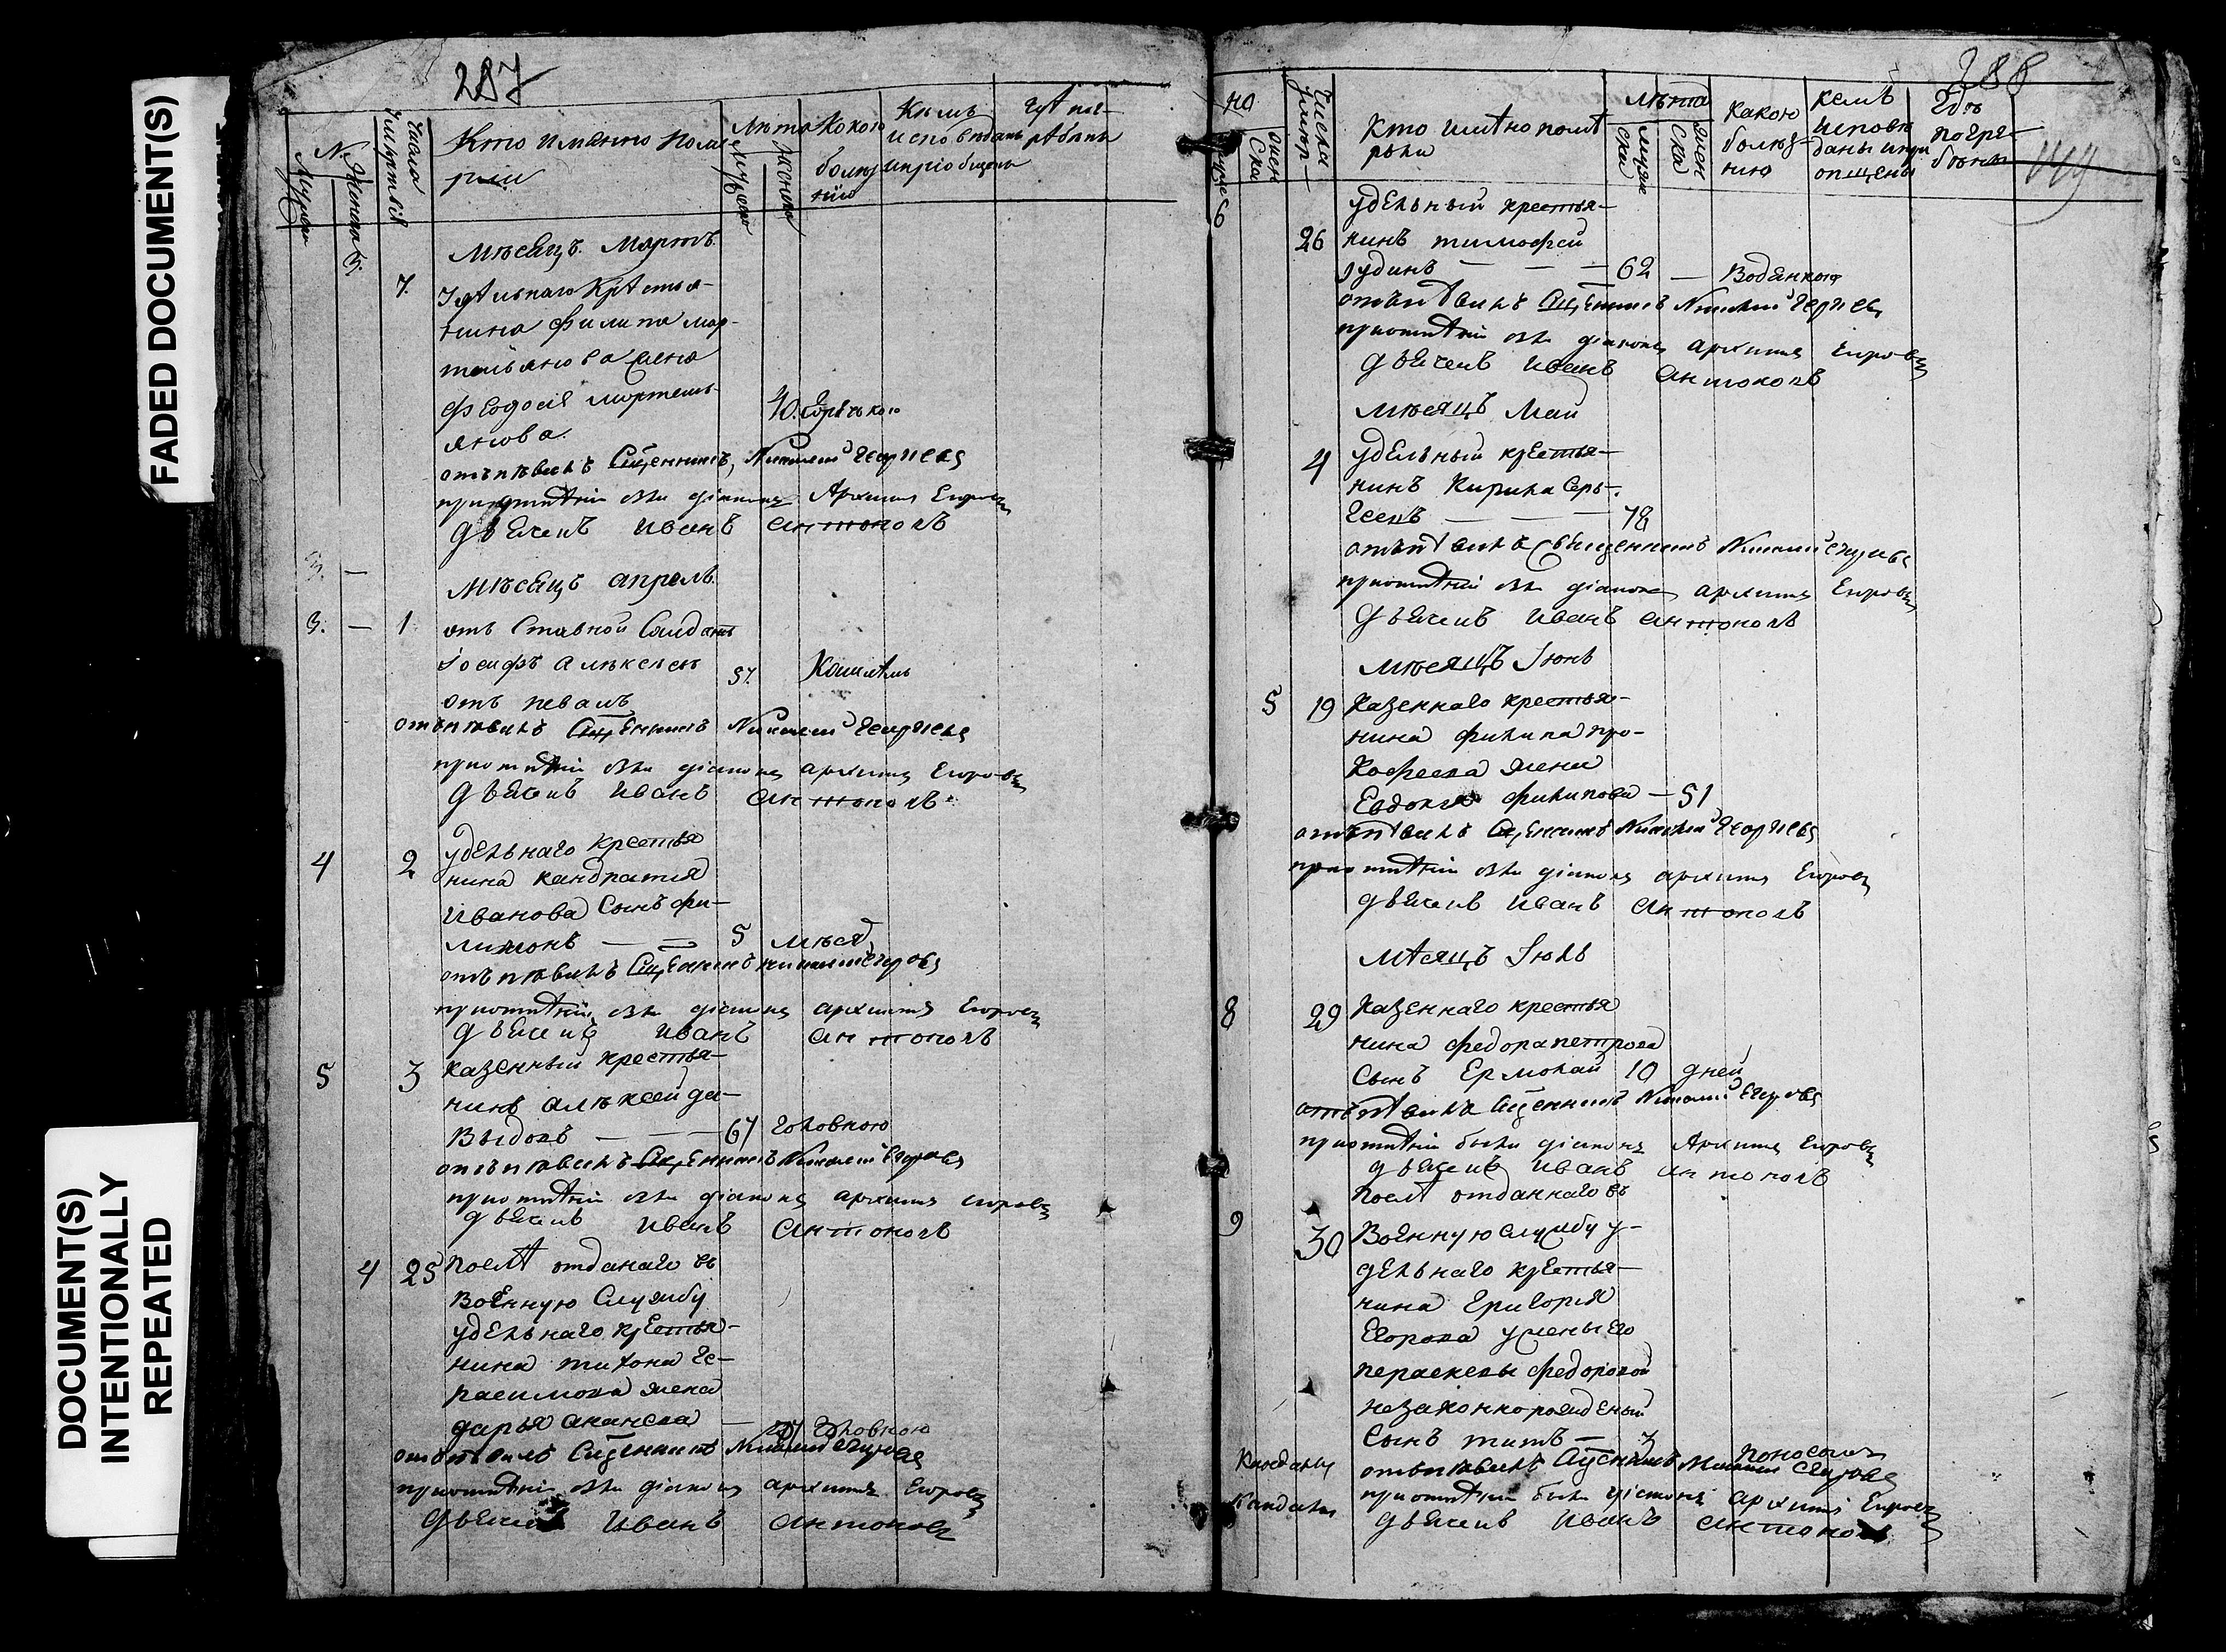 FADED DOCUMENT(S)
DOCUMENT(S)
INTENTIONALLY
REPEATED
287
№
Мужск
Женска
Числа
Кто имянно поме
рли
Лѣта
Какою
болез
нїю
Кѣмъ
исповѣданы
и прїобщены
Гдѣ пог
рѣбены
мѣсяцъ Мартъ
7. Удѣльнаго Крѣстья-
нина Филипа мар-
тѣмьянова жена
Федосья мартемь-
янова. 40. Горячкою
отъпѣвалъ Сщенникъ Николай Георгиевъ
причотнїи были дїаконъ Архипъ Егоровъ
дьячекъ Иванъ Антоновъ
3. —
мѣсяцъ апрель
3. — 1 отъ Ставной Салдатъ
Іосифъ алѣксеевъ 57. Кашлѣмъ
отъ певалъ
отъпѣвалъ Сщенникъ Николай Георгиевъ
причотнїи были дїаконъ архипъ Егоровъ
дьячекъ Иванъ Антоновъ
4 2 удельнаго крестья
нина кандратия
Иванова Сынъ фи-
лимонъ — 5 мѣсяц
отъпѣвалъ Сщенникъ Николай Егоровъ
причотнїи были дїаконъ архипъ Егоровъ
дьячекъ Иванъ Антоновъ
5 3 казенный крестья-
нинъ алѣксей да-
выдовъ — — — 67 головною
отъпѣвалъ Сщенникъ Николай Егоровъ
причотнїи были дїаконъ архипъ егоровъ
дьячекъ Иванъ Антоновъ
4 25 послѣ отданаго въ
военную Службу
удельнаго крестья-
нина тихона Ге-
расимова жена
дарья ананева — головною
отъпѣвалъ Сщенникъ Николай Егоровъ
причотнїи были дїаконъ архипъ Егоровъ
дьячекъ Иванъ Антоновъ
288
149
но
женска
Числа
умер
Кто имѣно поме
рьли
лѣта
мужска
женска
какою
болез-
нию
кемъ
исповѣ
даны и при
опщены
Где
погре-
бены
6
удельный крестья-
26 нинъ тимофей
юдинъ — — — 62 — Водянкою
отъпѣвалъ Сщенникъ Николай Георгиевъ
причотнїи были дїаконъ архипъ Егоровъ
дьячекъ Иванъ Антоновъ
мѣсяцъ Май
4 удельный крестья-
нинъ Кирила Сер-
геевъ — — — 78
отъпѣвалъ Священникъ Николай Егоровъ
причотнїи были дїаконъ архипъ Егоровъ
дьячекъ Иванъ Антоновъ
мѣсяцъ Іюнь
5 19 Казеннаго крестья-
нина филипа про-
кофеева жена
Евдокия филипова — 51
отъпѣвалъ Сщенникъ Николай Георгиевъ
причотнїи были дїаконъ архипъ Егоровъ
дьячекъ Иванъ Антоновъ
мѣсяцъ Іюль
8 29 Казеннаго крестья
нина федора петрова
Сынъ Ермолай 10 дней
отъпѣвалъ Сщенникъ Николай Егоровъ
причотнїи были дїаконъ Архипъ Егоровъ
дьячекъ Иванъ Антоновъ
послѣ отданнаго въ
9 30 Военную службу у-
дельнаго крестья-
нина Григория
Егорова у жены его
пераскевы федоровой
незаконнорожденый
Сынъ титъ — 3 поносомъ
отъпѣвалъ Сщенникъ Николай Егоровъ
причотнїи были дїаконъ архипъ Егоровъ
дьячекъ Иванъ Антоновъ